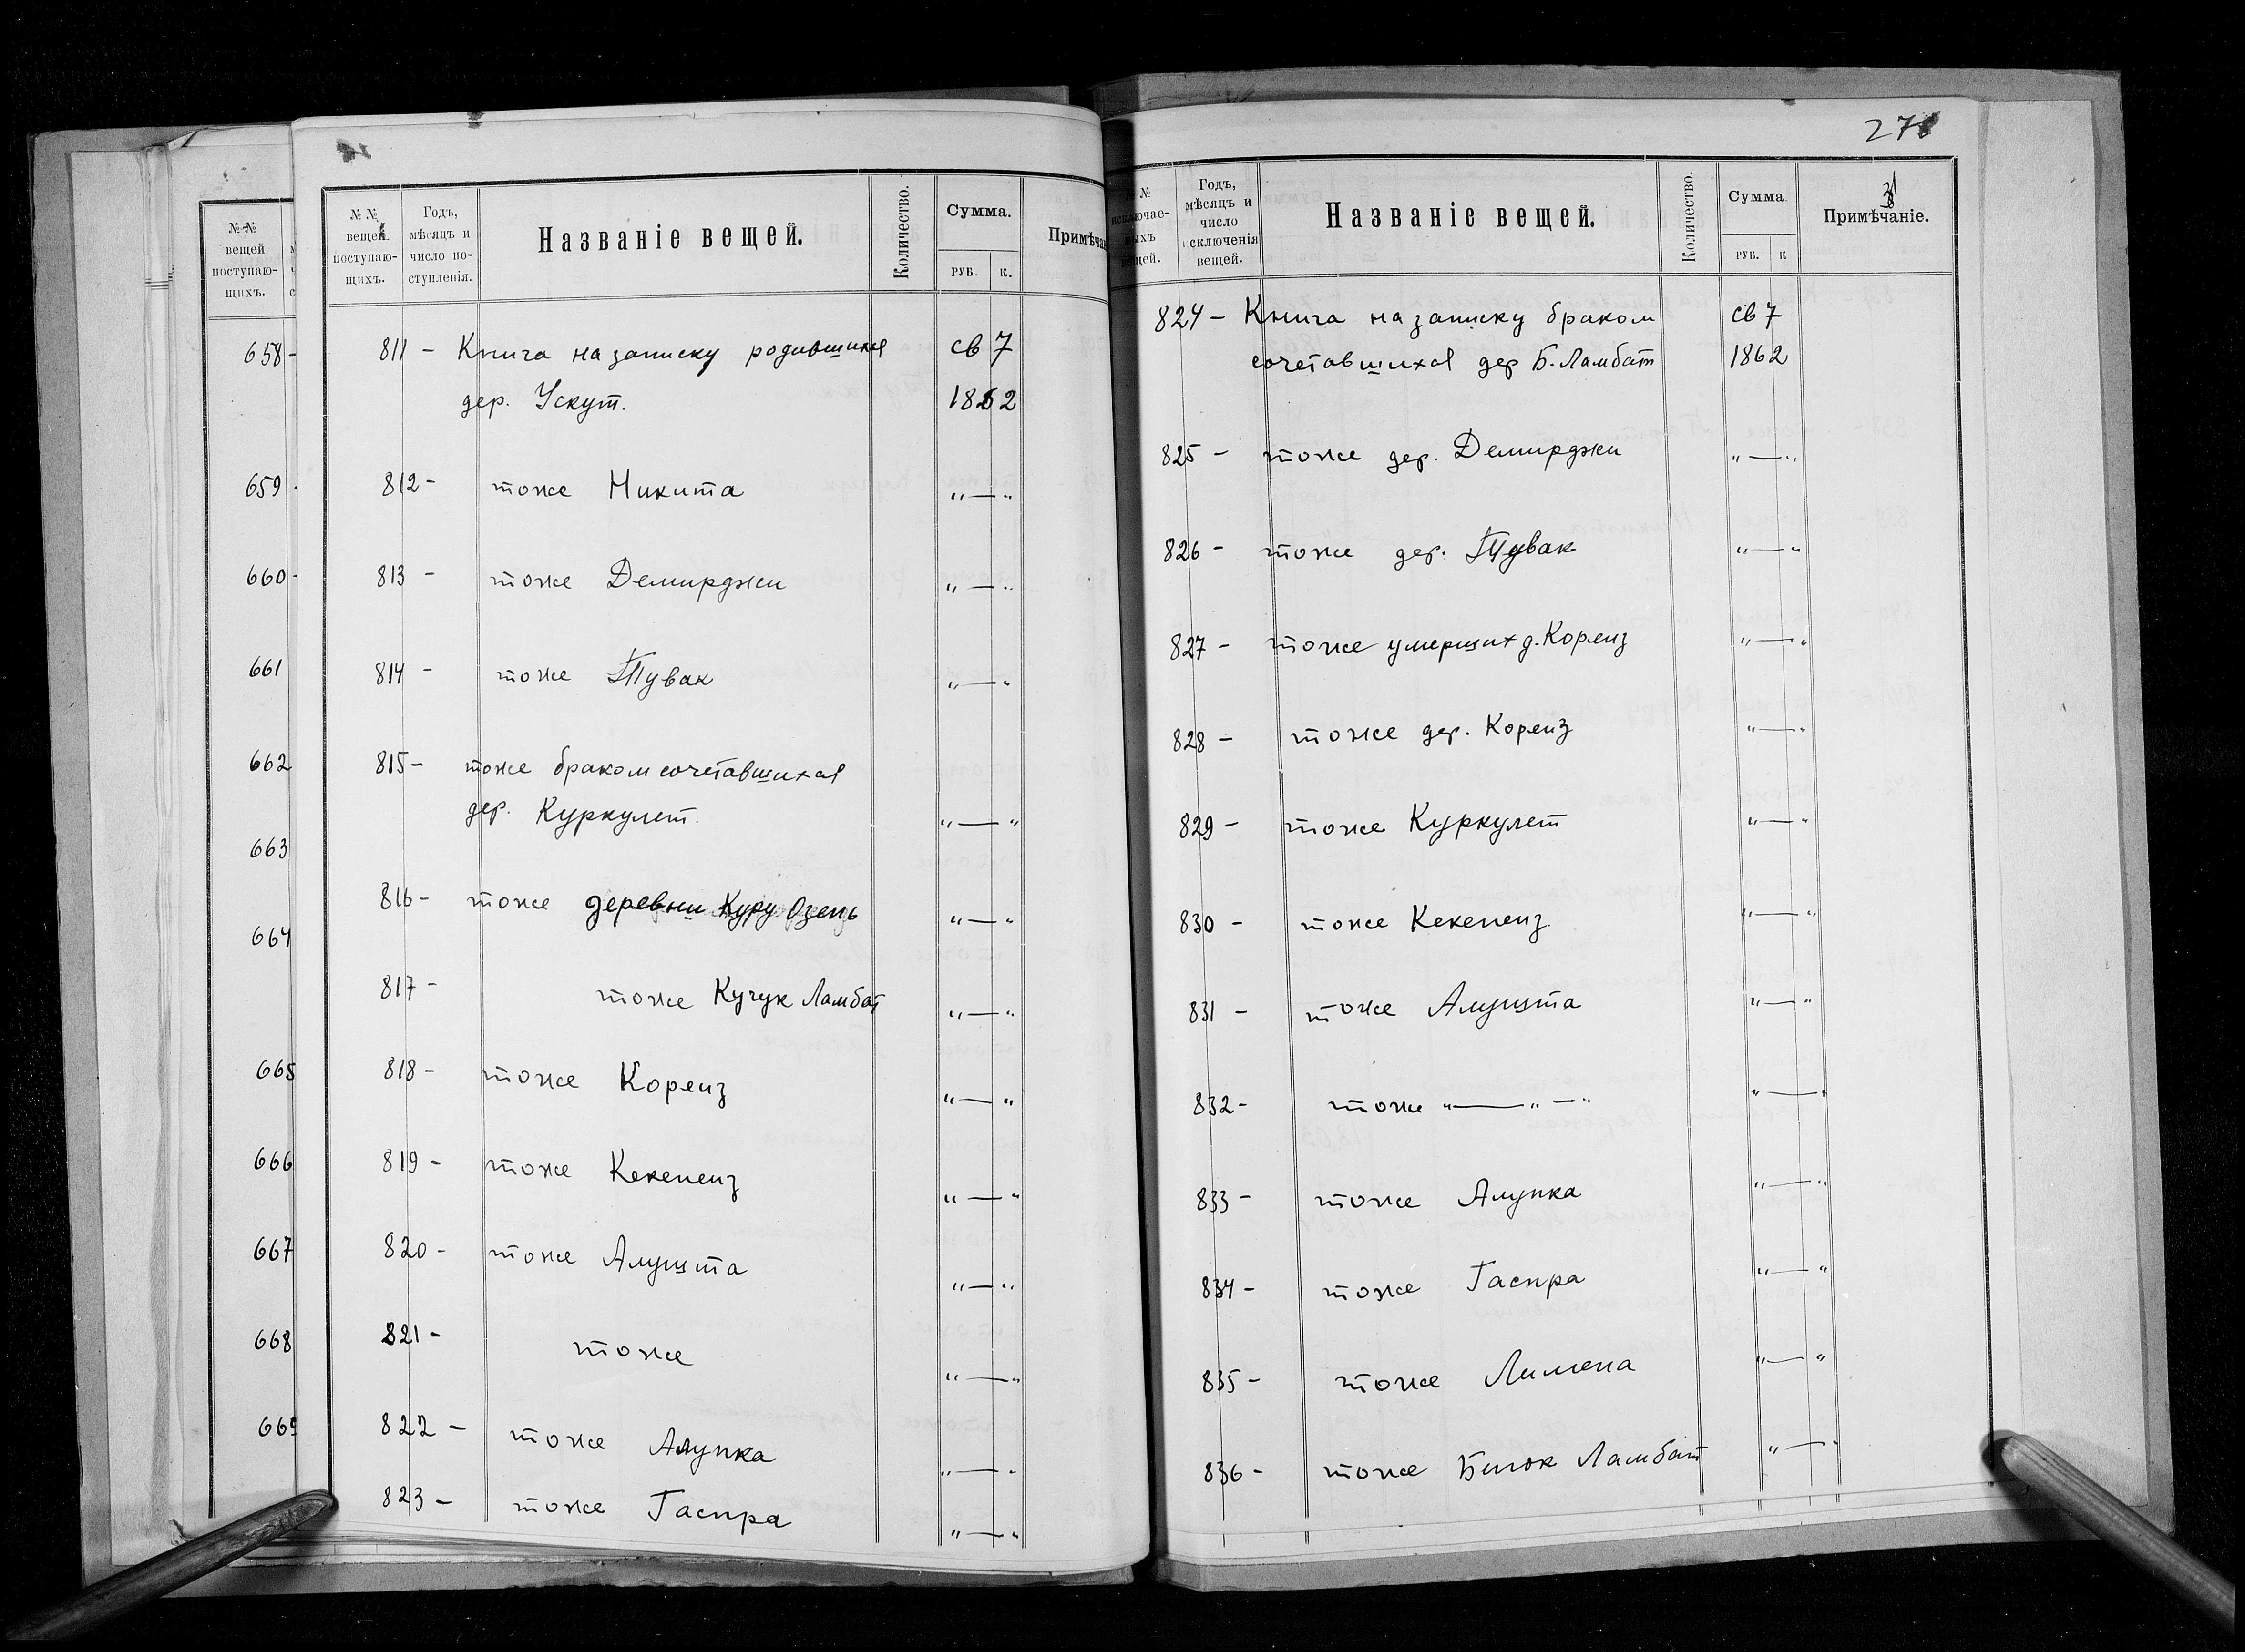 №№ вещей поступаю-щихъ.
658 -
659 -
660 -
661
662
663
664
665
666
667
668
669
№ № вещей поступаю-щихъ.
Годъ, мѣсяцъ и число по-ступленія.
Названіе вещей.
Количество.
Сумма.
РУБ. К.
Примѣча
811 - Книга на записку родившихся св 7
дер. Ускут. 1862
812 - тоже Никита "—"
813 - тоже Демирджи "—"
814 - тоже Тувак "—"
815 - тоже браком сочетавшихся
дер. Куркулет. "—"
816 - тоже деревни Куру Озень "—"
817 - тоже Кучук Ламбат "—"
818 - тоже Кореиз "—"
819 - тоже Кекенеиз "—"
820 - тоже Алушта "—"
821 - тоже "—"
822 - тоже Алупка "—"
823 - тоже Гаспра "—"
27
№ исключае-мыхъ вещей.
Годъ, мѣсяцъ и число исключенія вещей.
Названіе вещей.
Количество.
Сумма
РУБ. К
Примѣчаніе.
824 - Книга на записку браком св 7
сочетавшихся дер Б. Ламбат 1862
825 - тоже дер. Демирджи "—"
826 - тоже дер. Тувак "—"
827 - тоже умерших д. Кореиз "—"
828 - тоже дер. Кореиз "—"
829 - тоже Куркулет "—"
830 - тоже Кекенеиз "—"
831 - тоже Алушта "—"
832 - тоже "—"—" "—"
833 - тоже Алупка "—"
834 - тоже Гаспра "—"
835 - тоже Лимена "—"
836 - тоже Биюк Ламбат "—"